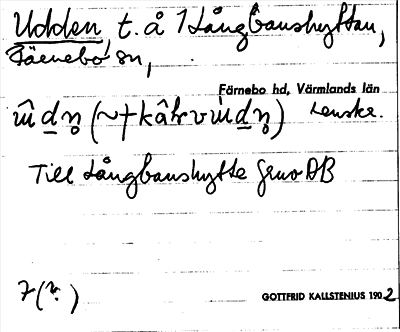 Udden t. å 1 Långbanshyttan,
Färnebo sn,
Färnebo hd, Värmlands län
Till Långbanshytte gruv AB
7 (?)
GOTTFRID KALLSTENIUS 1902